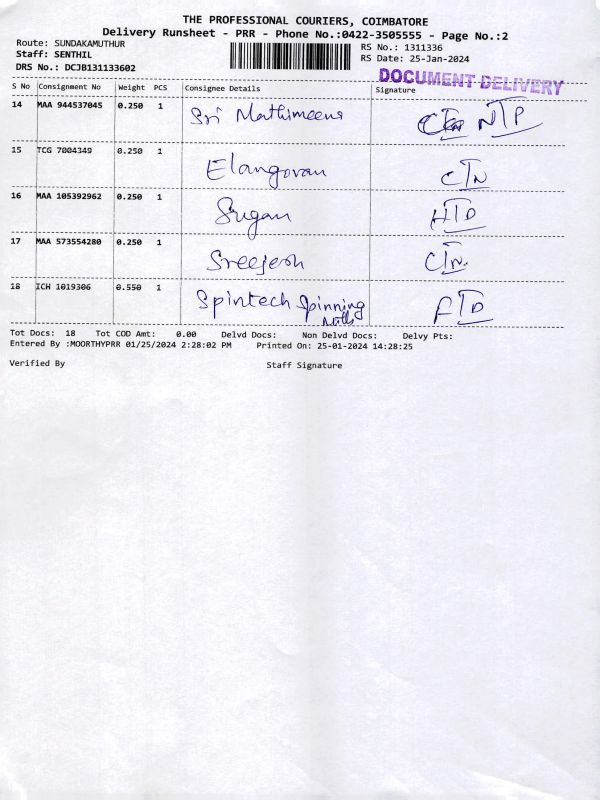 THE PROFESSIONAL COURIERS, COIMBATORE
Delivery Runsheet - PRR - Phone No.:0422-3505555 - Page No.:2
Route: SUNDAKAMUTHUR
Staff: SENTHIL
DRS No.: DCJB131133602
RS No.: 1311336
RS Date: 25-Jan-2024
DOCUMENT DELIVERY
S No Consignment No Weight PCS Consignee Details Signature
14 MAA 944537045 0.250 1 Sri Mathimeena NTP
15 TCG 7004349 0.250 1 Elangovan CTN
16 MAA 105392962 0.250 1 Sugan HTD
17 MAA 573554280 0.250 1 Sreejesh CTN.
18 ICH 1019306 0.550 1 Spintech Spinning
Mills FTD
Tot Docs: 18 Tot COD Amt: 0.00 Delvd Docs: Non Delvd Docs: Delvy Pts:
Entered By :MOORTHYPRR 01/25/2024 2:28:02 PM Printed On: 25-01-2024 14:28:25
Verified By Staff Signature